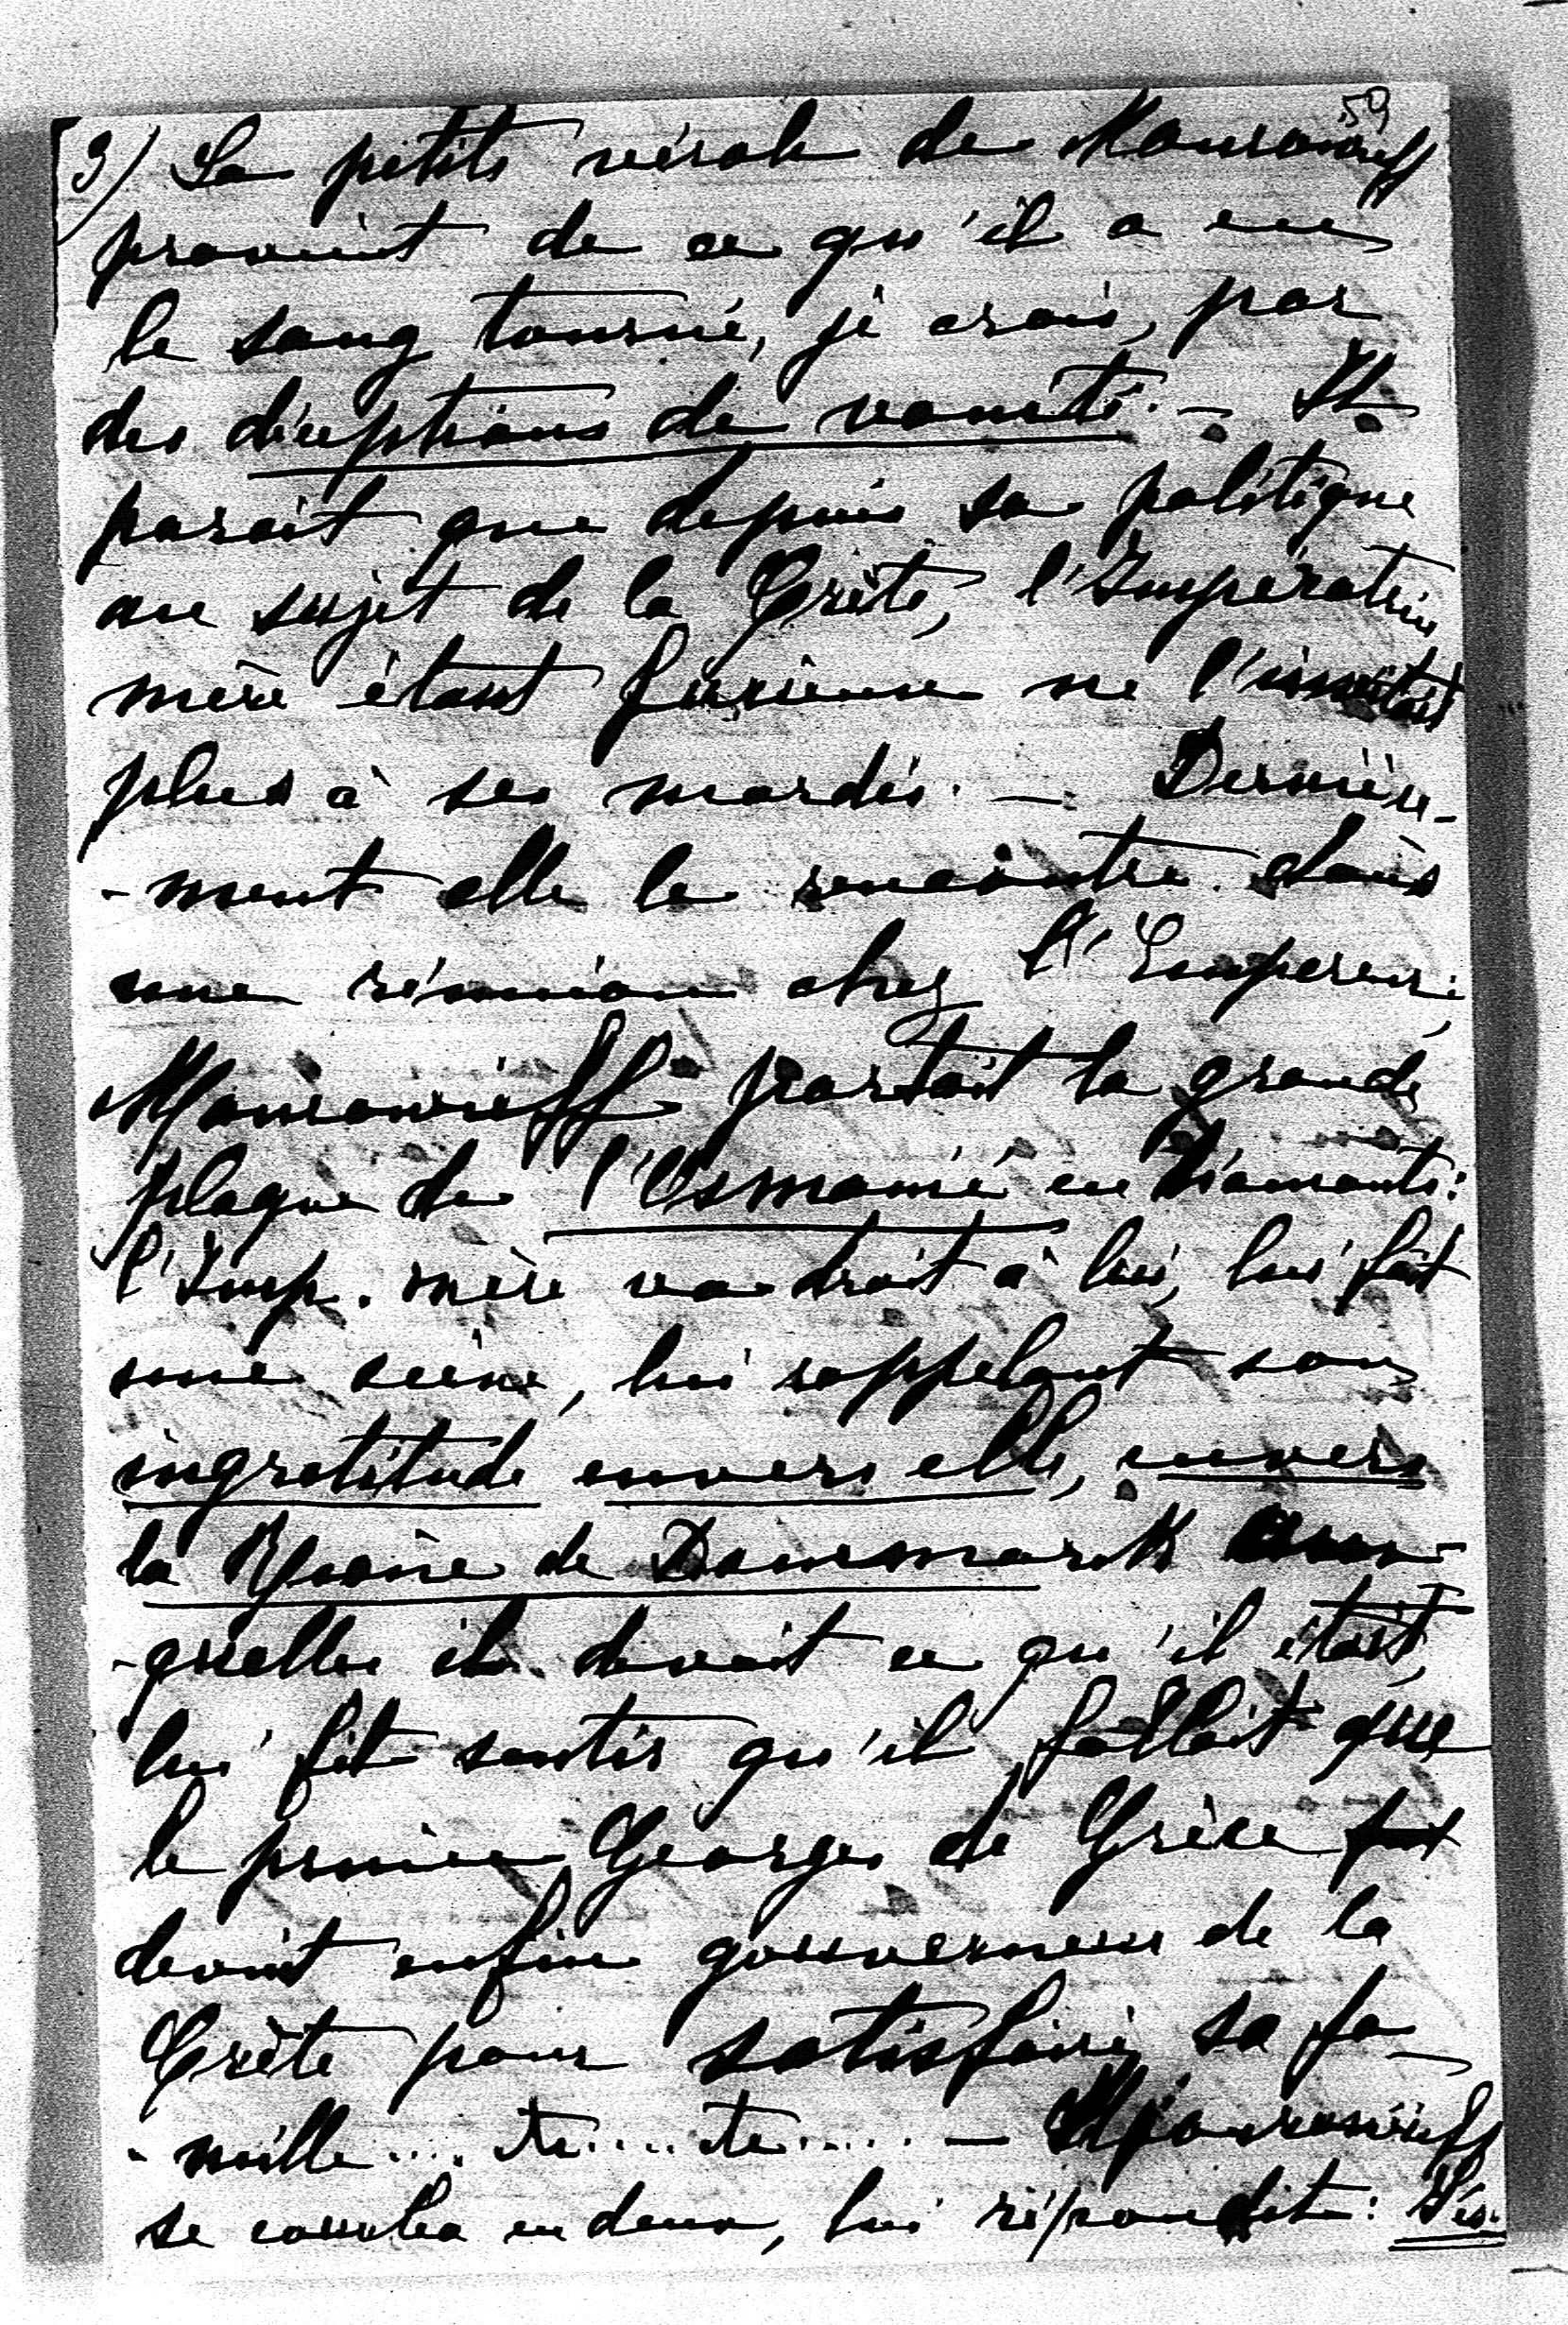 59
3/ La petite vérole de Mouravieff
provient de ce qu'il a eu
le sang tourné, je crois, par
des déceptions de vanité. — Il
parait que depuis sa politique
au sujet de la Crète, l'Impératrice
mère étant furieuse ne l'invitait
plus à ses mardis. — Dernière-
-ment elle le rencontre dans
une réunion chez l'Empereur;
Mouravieff portait la grande
plaque de l'Osmanié en diamants:
l'Imp. mère va droit à lui, lui fait
une scène, lui rappelant son
ingratitude envers elle, envers
la Reine de Danemark aux-
-quelles il devait ce qu'il était,
lui fit sentir qu'il fallait que
le prince Georges de Grèce fut
devint enfin gouverneur de la
Crète pour satisfaire sa fa-
-mille .... etc .... etc ..... — Mouravieff
se courba en deux, lui répondit: